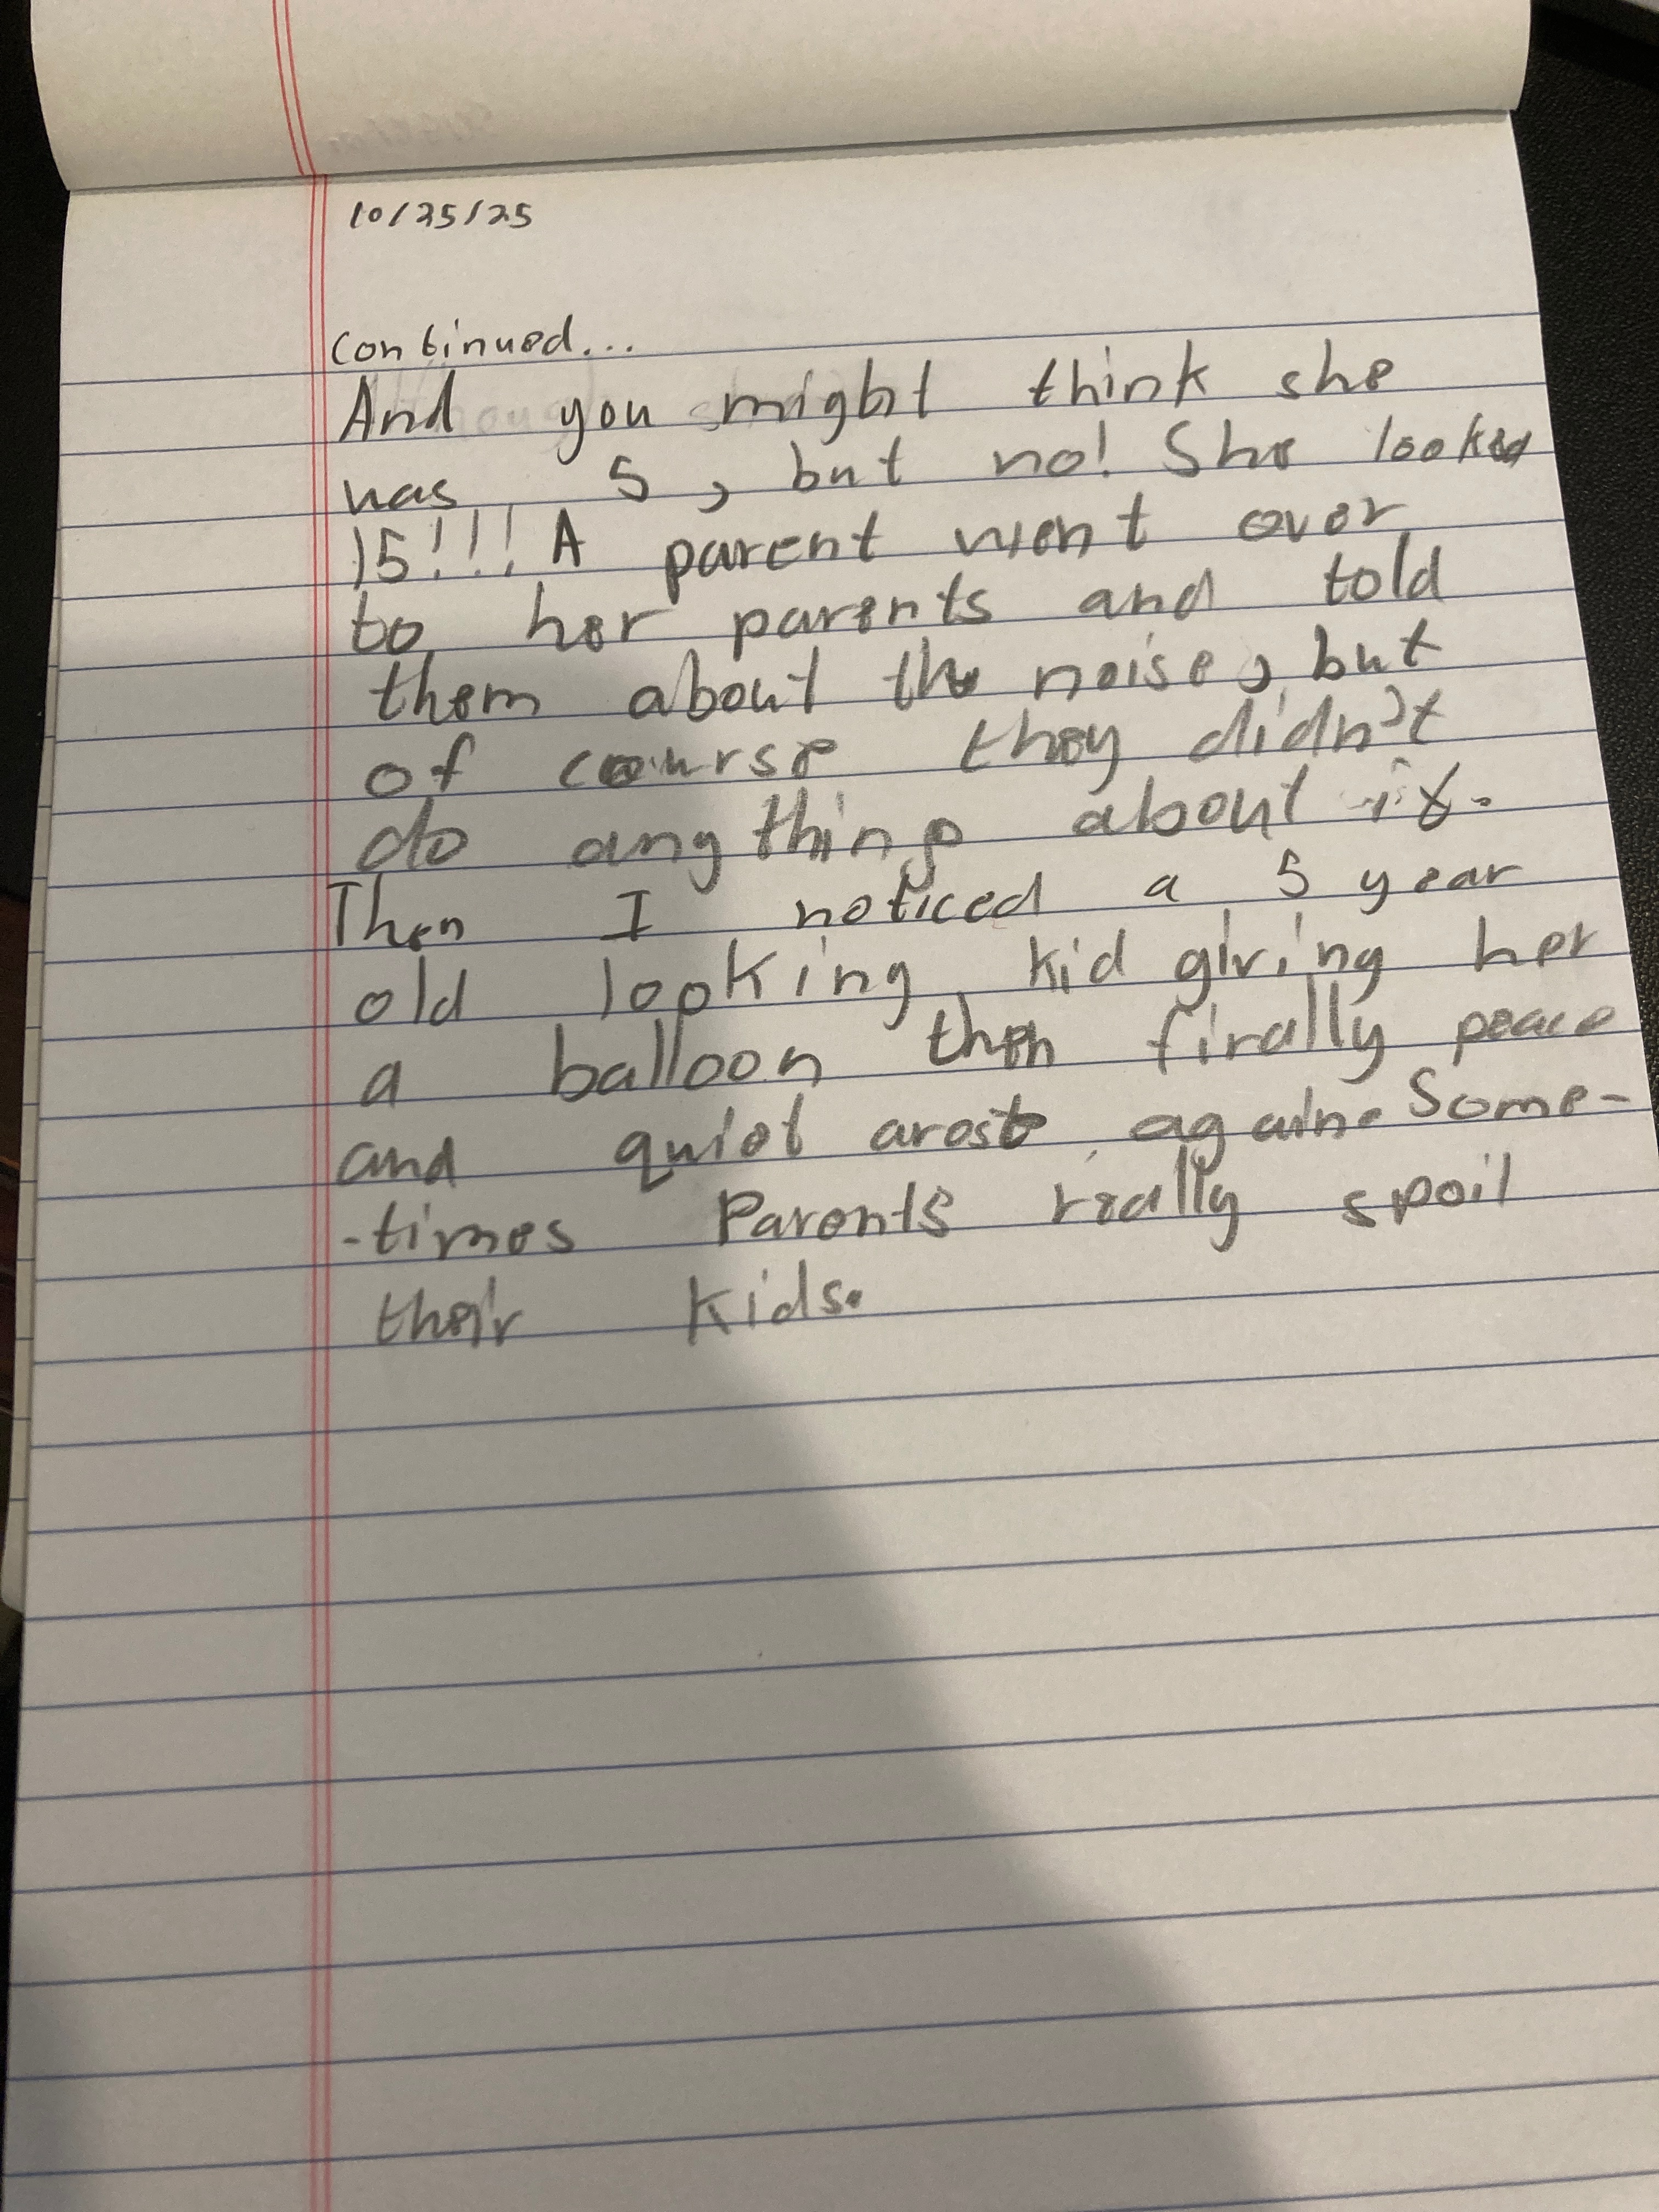 10/25/25
continued...
And you might think she
was 5, but no! She looked
15!!! A parent went over
to her parents and told
them about the noise, but
of course they didn't
do anything about it.
Then I noticed a 5 year
old looking kid giving her
a balloon then finally peace
and quiet arose again. Some-
-times Parents really spoil
their kids.